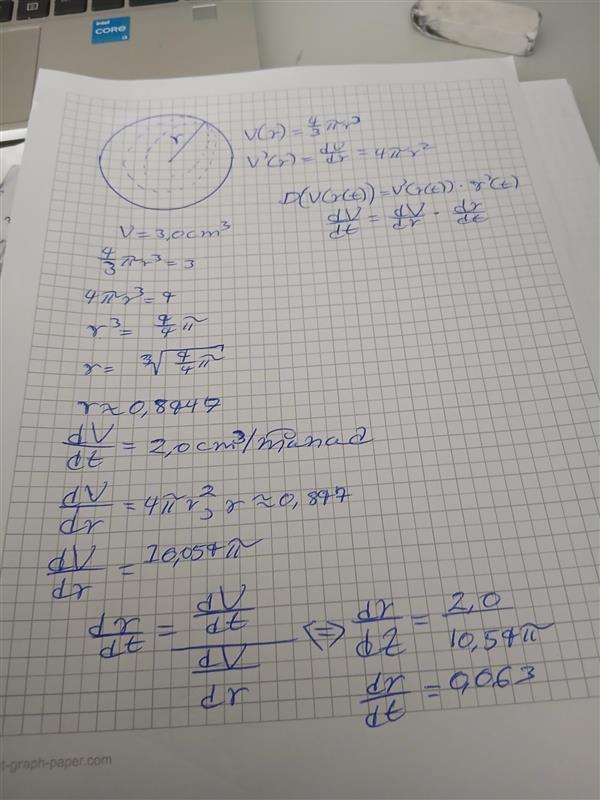 intel
CORE
i3
r
V(r) = 4/3 πr³
V'(r) = dV/dr = 4πr²
D(V(r(t)) = V'(r(t)) · r'(t)
dV/dt = dV/dr · dr/dt
V = 3,0cm³
4/3 πr³ = 3
4πr³ = 9
r³ = 9/4 π
r = ³√(9/4 π)
r ≈ 0,8947
dV/dt = 2,0cm³/månad
dV/dr = 4πr², r ≈ 0,897
dV/dr = 10,059π
dr/dt = (dV/dt)/(dV/dr) ⇔ dr/dt = 2,0/10,59π
dr/dt = 0,063
t-graph-paper.com